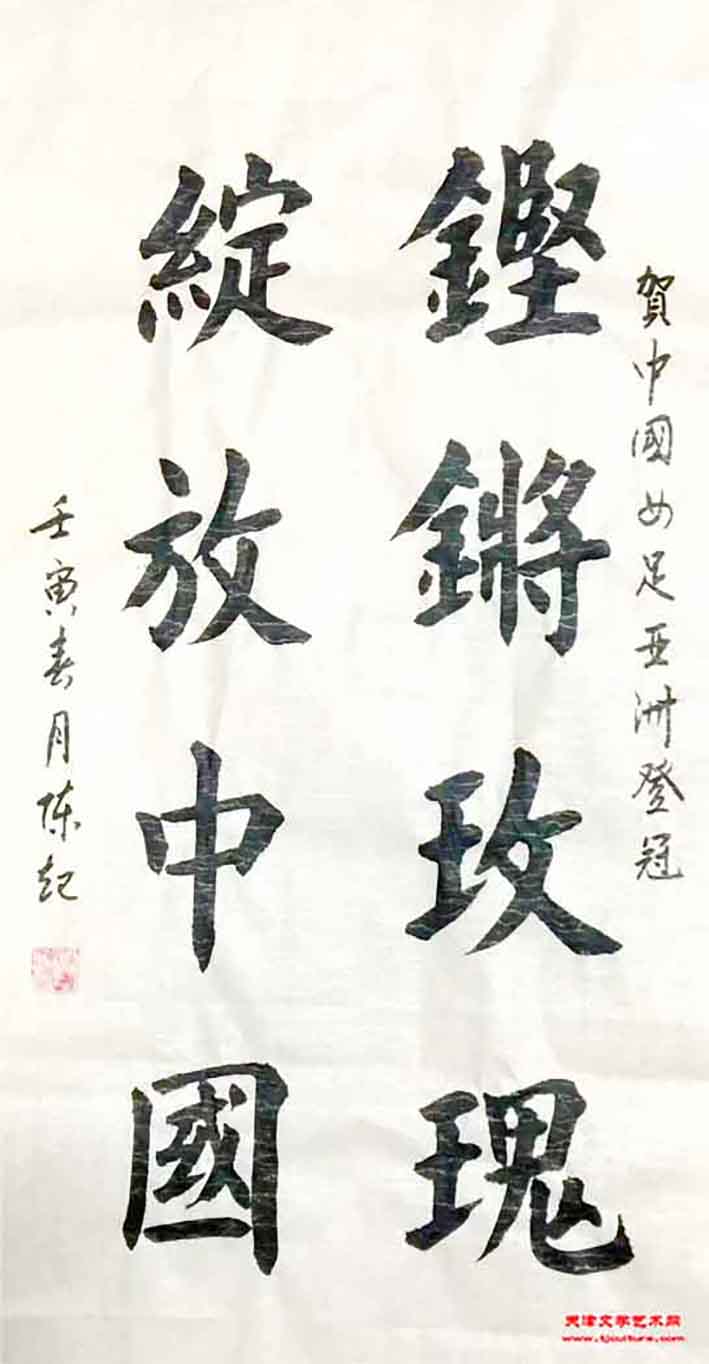 賀中國女足亚洲登冠
鏗鏘玫瑰
綻放中國
壬寅春月陈起
天津文学艺术网
www.tjculture.com